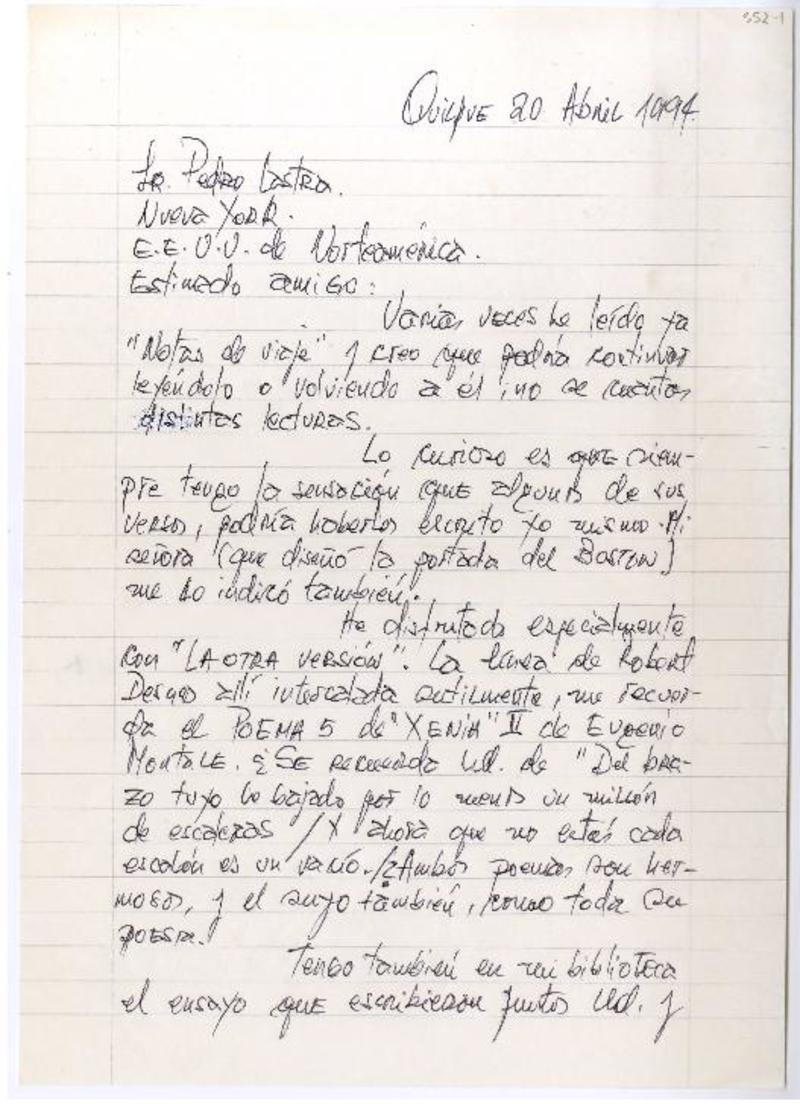 352-1
Quilpue 20 Abril 1994.
Sr. Pedro Lastra.
Nueva York.
E.E.U.U. de Norteamérica.
Estimado amigo:
Varias veces he leído ya
"Notas de viaje" y creo que podría continuar
leyéndolo o volviendo a él no se cuantas
distintas lecturas.
Lo curioso es que siem-
pre tengo la sensación que algunos de sus
versos, podría haberlos escrito yo mismo. Mi
señora (que diseñó la portada del Boston)
me lo indicó también.
He disfrutado especialmente
con "LA OTRA VERSIÓN". La línea de Robert
Desnos allí intercalada sutilmente, me recuer-
da el POEMA 5 de "XENIA" II de Eugenio
Montale. ¿Se recuerda Ud. de "Del bra-
zo tuyo he bajado por lo menos un millón
de escaleras / Y ahora que no estás cada
escalón es un vacío./? Ambos poemas son her-
mosos, y el suyo también, como toda su
poesía.
Tengo también en mi biblioteca
el ensayo que escribieron juntos Ud. y